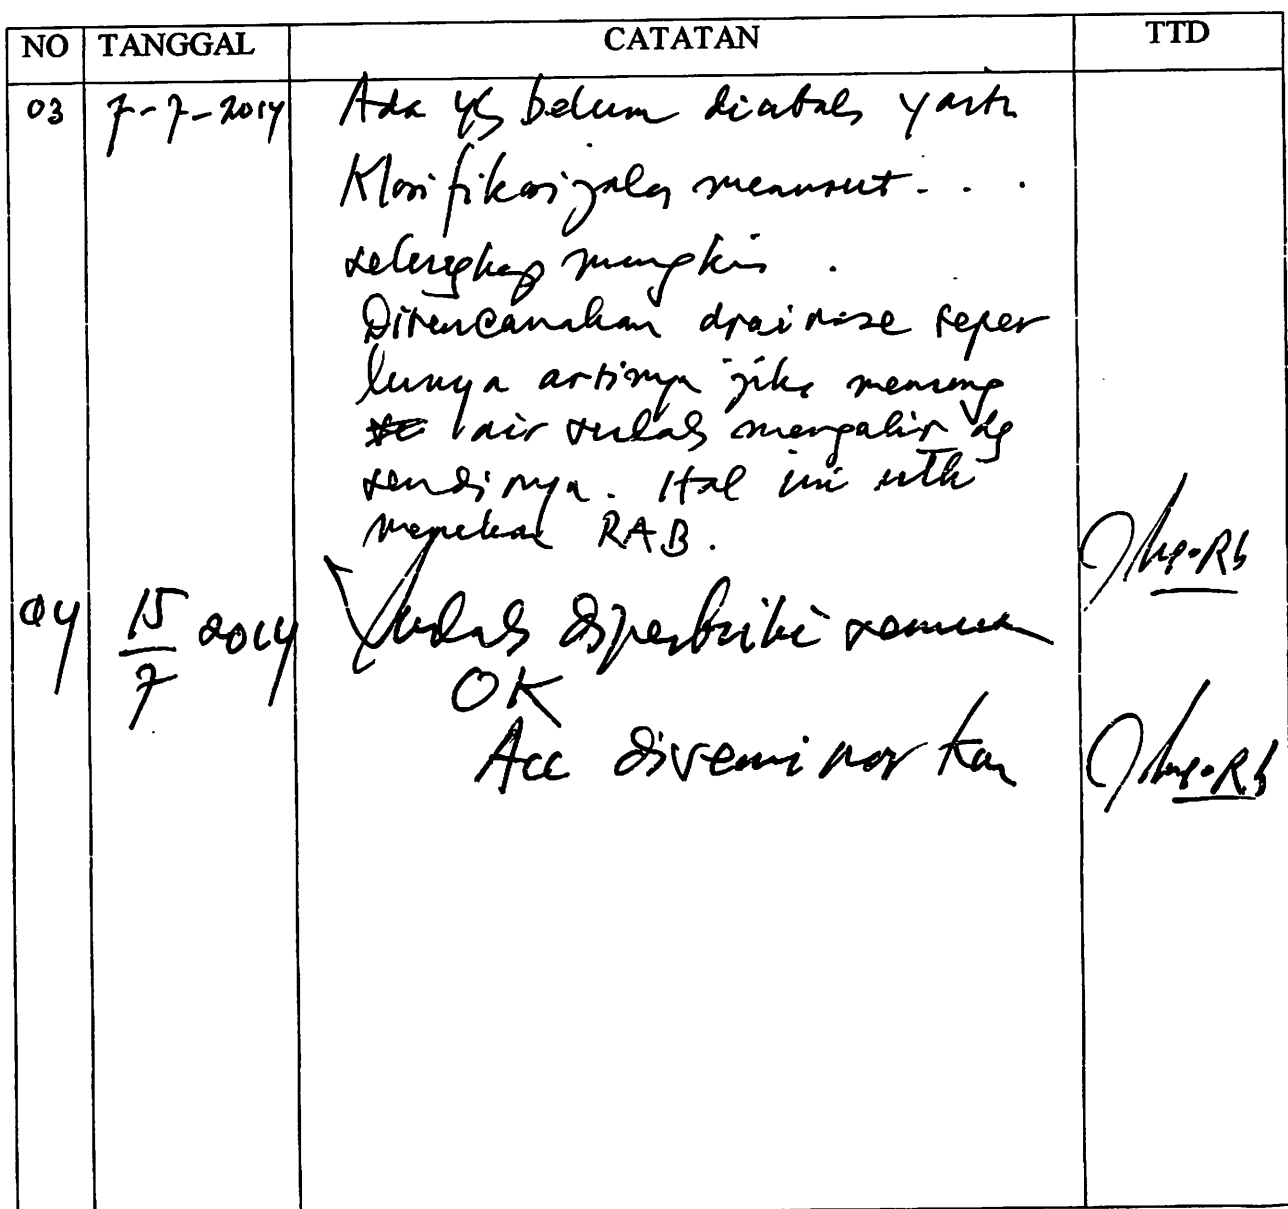 NO TANGGAL CATATAN TTD
03 7-7-2014 Ada yg belum dibahas yaitu
Klasifikasi jalan menurut . . .
selengkap mungkin .
Direncanakan drainase seper
lunya artinya jika memang
air sudah mengalir dg
sendirinya. Hal ini utk
menekan RAB.
04 15/7 2014 Sudah diperbaiki semua
OK
Acc diseminarkan